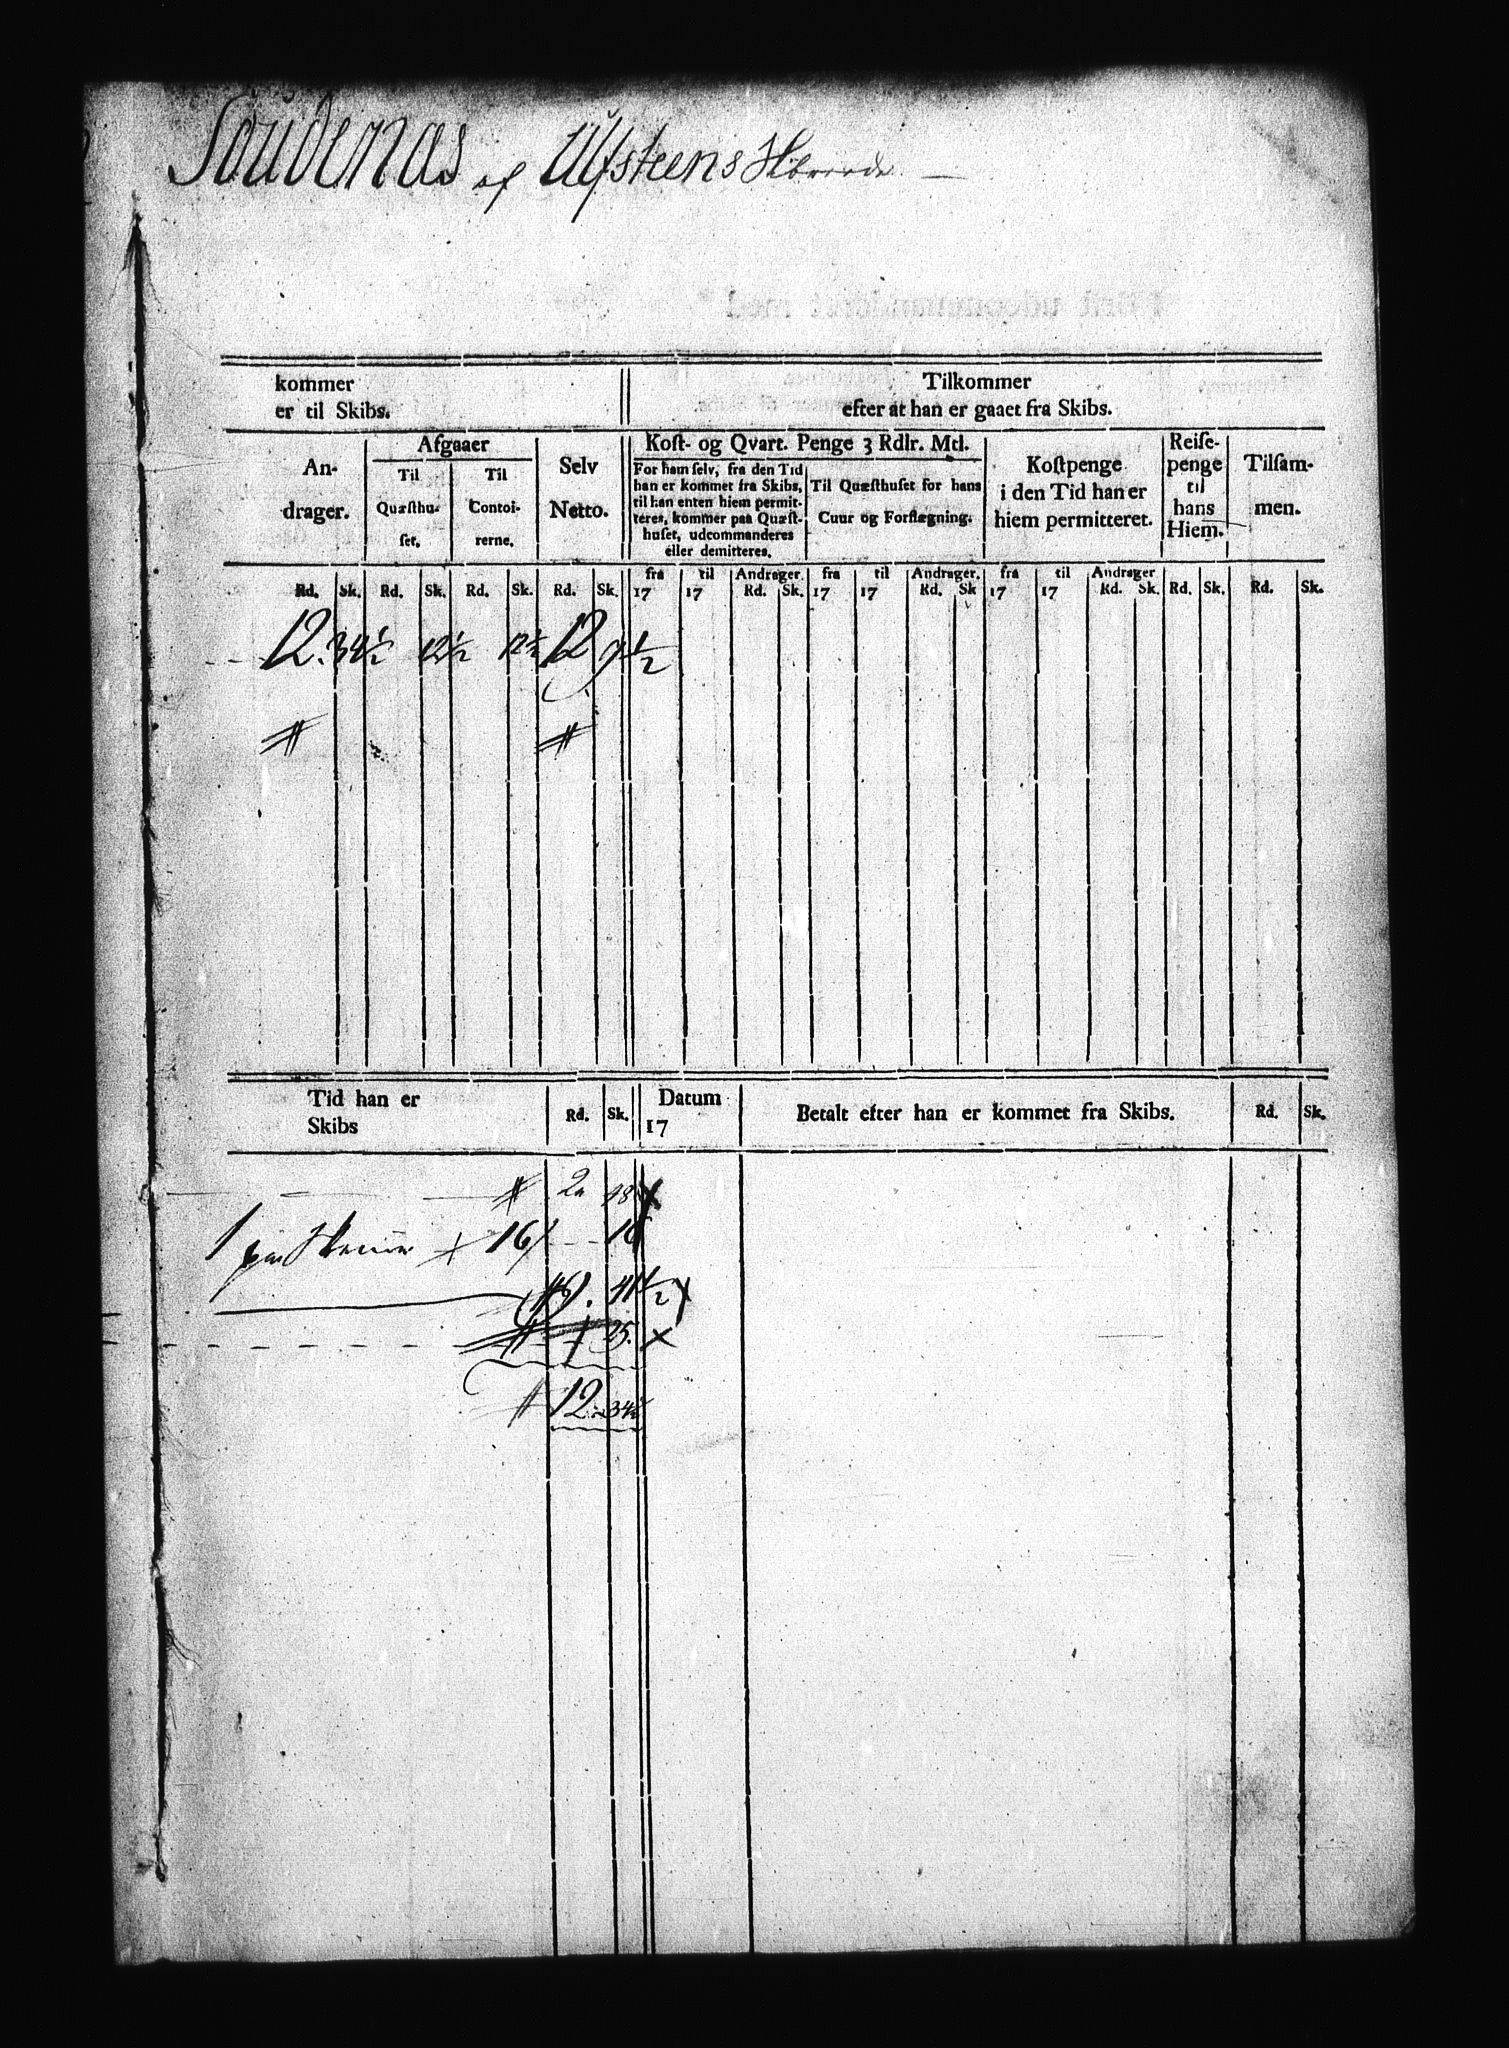 Soudenas af Ulfsteens
kommer
er til Skibs.
Tilkommer
efter at han er gaaet fra Skibs.
An-
drager.
Afgaaer
Til
Quæsthu-
set.
Til
Contoi-
rerne.
Selv
Netto.
Kost- og Qvart. Penge 3 Rdlr. Mtl.
For ham selv, fra den Tid
han er kommet fra Skibs,
til han enten hiem permit-
teres, kommer paa Quæst-
huset, udcommanderes
eller demitteres.
Til Quæsthuset for hans
Cuur og Forflægning.
Kostpenge
i den Tid han er
hiem permitteret.
Reise-
penge
til
hans
Hiem.
Tilsam-
men.
fra til Andrager. fra til Andrager. fra til Andrager
Rd. Sk. Rd. Sk. Rd. Sk. Rd. Sk. 17 17 Rd. Sk. 17 17 Rd. Sk 17 17 Rd. Sk. Rd. Sk. Rd. Sk.
12. 34½ 12½ 12½ 12 9½
Tid han er
Skibs
Rd. Sk.
Datum
17
Betalt efter han er kommet fra Skibs.
Rd. Sk.
2 18 x
1 par 16 16
9. 41½ x
25. x
12. 34½